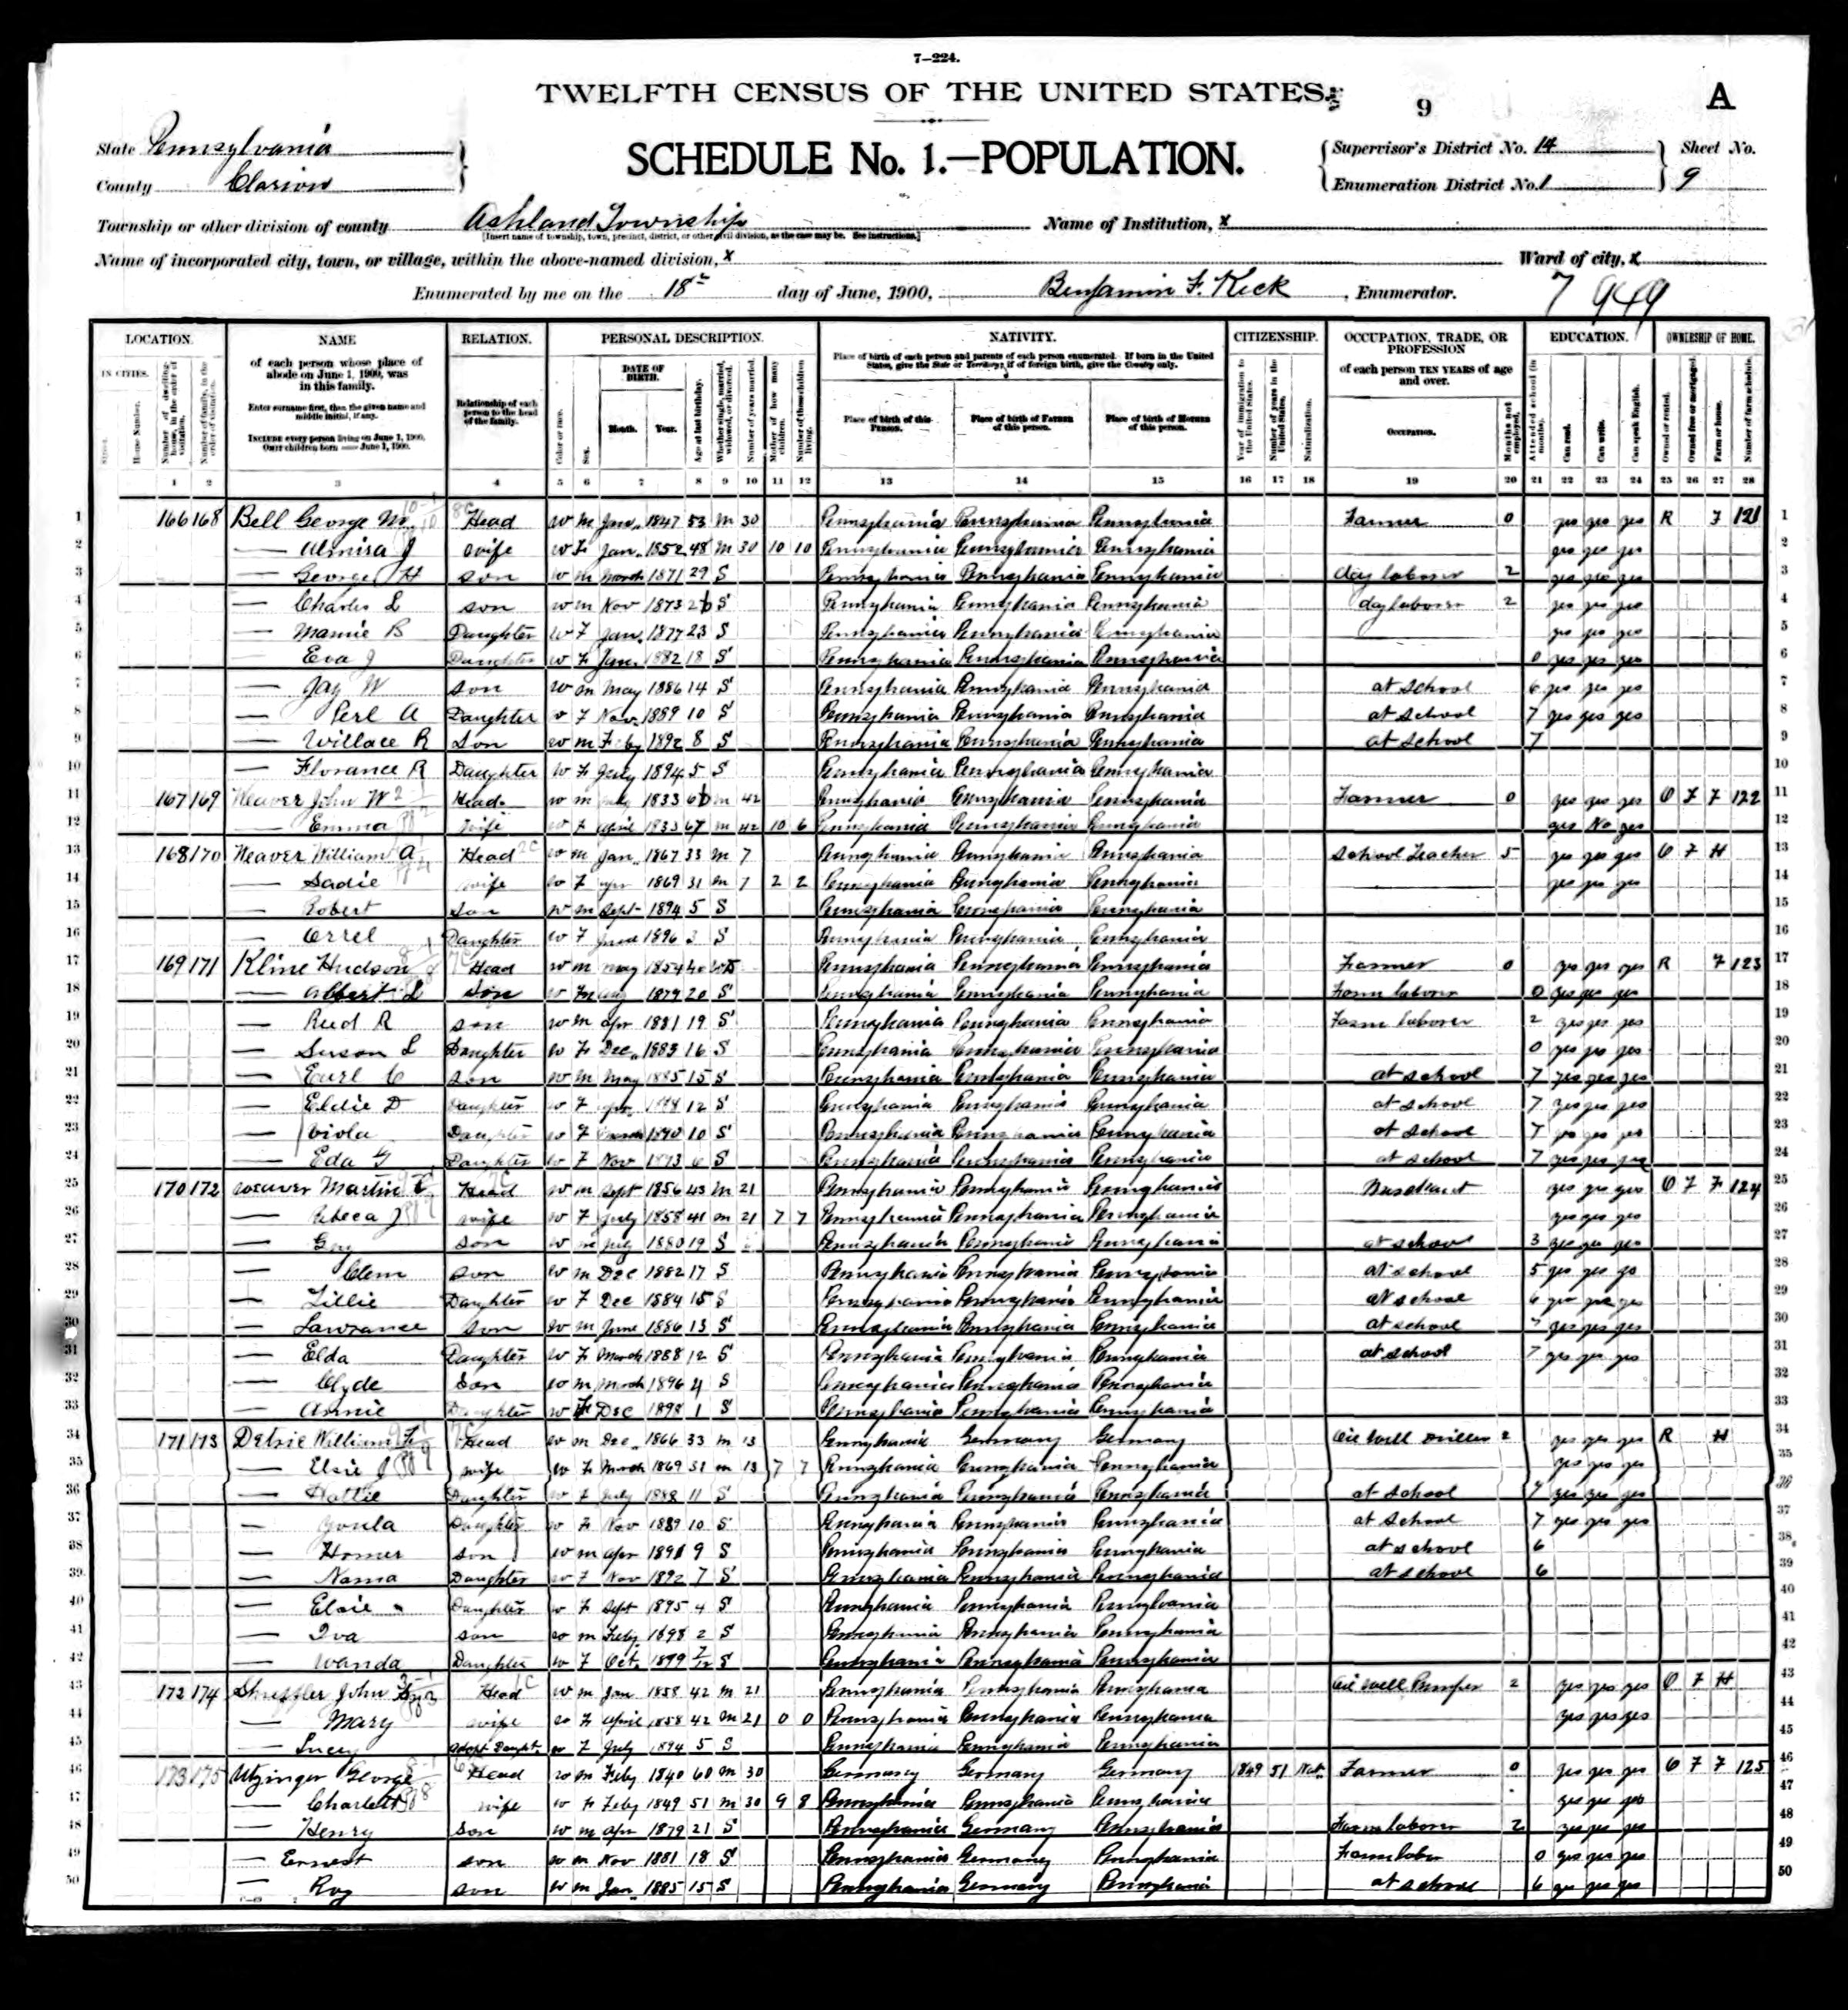 7—224.
TWELFTH CENSUS OF THE UNITED STATES.
9 A
State Pennsylvania
County Clarion
SCHEDULE No. 1.—POPULATION.
Supervisor's District No. 14 Sheet No.
Enumeration District No. 1 9
Township or other division of county Ashland Township Name of Institution, x
[Insert name of township, town, precinct, district, or other civil division, as the case may be. See instructions.]
Name of incorporated city, town, or village, within the above-named division, x Ward of city, x
Enumerated by me on the 18th day of June, 1900, Benjamin F. Keck, Enumerator. 7 949
LOCATION. NAME RELATION. PERSONAL DESCRIPTION. NATIVITY. CITIZENSHIP. OCCUPATION, TRADE, OR PROFESSION EDUCATION. OWNERSHIP OF HOME.
1 2 3 4 5 6 7 8 9 10 11 12 13 14 15 16 17 18 19 20 21 22 23 24 25 26 27 28
1 166 168 Bell George M. Head W M Jan. 1847 53 M 30 Pennsylvania Pennsylvania Pennsylvania Farmer 0 yes yes yes R F 121 1
2 — Almira J wife W F Jan. 1852 48 M 30 10 10 Pennsylvania Pennsylvania Pennsylvania yes yes yes 2
3 — George H son W M March 1871 29 S Pennsylvania Pennsylvania Pennsylvania day laborer 2 yes yes yes 3
4 — Charles L son W M Nov 1873 26 S Pennsylvania Pennsylvania Pennsylvania day laborer 2 yes yes yes 4
5 — Mamie B Daughter W F Jan. 1877 23 S Pennsylvania Pennsylvania Pennsylvania yes yes yes 5
6 — Eva J Daughter W F Jan. 1882 18 S Pennsylvania Pennsylvania Pennsylvania 0 yes yes yes 6
7 — Jay W son W M May 1886 14 S Pennsylvania Pennsylvania Pennsylvania at school 6 yes yes yes 7
8 — Perl A Daughter W F Nov. 1889 10 S Pennsylvania Pennsylvania Pennsylvania at school 7 yes yes yes 8
9 — Willace R Son W M Feby 1892 8 S Pennsylvania Pennsylvania Pennsylvania at school 7 9
10 — Florance R Daughter W F July 1894 5 S Pennsylvania Pennsylvania Pennsylvania 10
11 167 169 Weaver John W Head W M 1833 66 M 42 Pennsylvania Pennsylvania Pennsylvania Farmer 0 yes yes yes O F F 122 11
12 — Emma wife W F April 1833 67 M 42 10 6 Pennsylvania Pennsylvania Pennsylvania yes No yes 12
13 168 170 Weaver William A Head W M Jan. 1867 33 M 7 Pennsylvania Pennsylvania Pennsylvania School Teacher 5 yes yes yes O F H 13
14 — Sadie wife W F apr 1869 31 M 7 2 2 Pennsylvania Pennsylvania Pennsylvania yes yes yes 14
15 — Robert Son W M Sept 1894 5 S Pennsylvania Pennsylvania Pennsylvania 15
16 — Orrel Daughter W F June 1896 3 S Pennsylvania Pennsylvania Pennsylvania 16
17 169 171 Kline Hudson Head W M May 1854 Pennsylvania Pennsylvania Pennsylvania Farmer 0 yes yes yes R F 123 17
18 — Albert L Son W M aug 1879 20 S Pennsylvania Pennsylvania Pennsylvania Farm laborer 0 yes yes yes 18
19 — Reed R son W M apr 1881 19 S Pennsylvania Pennsylvania Pennsylvania Farm laborer 2 yes yes yes 19
20 — Susan L Daughter W F Dec. 1883 16 S Pennsylvania Pennsylvania Pennsylvania 0 yes yes yes 20
21 — Earl C son W M May 1885 15 S Pennsylvania Pennsylvania Pennsylvania at school 7 yes yes yes 21
22 — Eldie D Daughter W F apr. 1888 12 S Pennsylvania Pennsylvania Pennsylvania at school 7 yes yes yes 22
23 — Viola Daughter W F March 1890 10 S Pennsylvania Pennsylvania Pennsylvania at school 7 yes yes yes 23
24 — Eda G Daughter W F Nov 1893 6 S Pennsylvania Pennsylvania Pennsylvania at school 7 yes yes yes 24
25 170 172 Weaver Martin Head W M Sept 1856 43 M 21 Pennsylvania Pennsylvania Pennsylvania yes yes yes O F F 124 25
26 — Rebeca J wife W F July 1858 41 M 21 7 7 Pennsylvania Pennsylvania Pennsylvania yes yes yes 26
27 — Guy son W M July 1880 19 S Pennsylvania Pennsylvania Pennsylvania at school 3 yes yes yes 27
28 — Clem son W M Dec 1882 17 S Pennsylvania Pennsylvania Pennsylvania at school 5 yes yes yes 28
29 — Lillie Daughter W F Dec 1884 15 S Pennsylvania Pennsylvania Pennsylvania at school 6 yes yes yes 29
30 — Lawrance Son W M June 1886 13 S Pennsylvania Pennsylvania Pennsylvania at school 7 yes yes yes 30
31 — Elda Daughter W F March 1888 12 S Pennsylvania Pennsylvania Pennsylvania at school 7 yes yes yes 31
32 — Clyde Son W M March 1896 4 S Pennsylvania Pennsylvania Pennsylvania 32
33 — Annie Daughter W F Dec 1898 1 S Pennsylvania Pennsylvania Pennsylvania 33
34 171 173 Detrie William F Head W M Dec. 1866 33 M 13 Pennsylvania Germany Germany Oil Well Driller 2 yes yes yes R H 34
35 — Elsie J wife W F March 1869 31 M 13 7 7 Pennsylvania Pennsylvania Pennsylvania yes yes yes 35
36 — Hattie Daughter W F July 1888 11 S Pennsylvania Pennsylvania Pennsylvania at school 7 yes yes yes 36
37 — Daughter W F Nov 1889 10 S Pennsylvania Pennsylvania Pennsylvania at school 7 yes yes yes 37
38 — Homer son W M apr 1891 9 S Pennsylvania Pennsylvania Pennsylvania at school 6 38
39 — Nama Daughter W F Nov 1892 7 S Pennsylvania Pennsylvania Pennsylvania at school 6 39
40 — Elsie Daughter W F Sept 1895 4 S Pennsylvania Pennsylvania Pennsylvania 40
41 — Iva son W M Feby 1898 2 S Pennsylvania Pennsylvania Pennsylvania 41
42 — Wanda Daughter W F Oct. 1899 7/12 S Pennsylvania Pennsylvania Pennsylvania 42
43 172 174 John Head W M Jan 1858 42 M 21 Pennsylvania Pennsylvania Pennsylvania Oil Well Pumper 2 yes yes yes O F H 43
44 — Mary wife W F April 1858 42 M 21 0 0 Pennsylvania Pennsylvania Pennsylvania yes yes yes 44
45 — Lucy Adopt Daught. W F July 1894 5 S Pennsylvania Pennsylvania Pennsylvania 45
46 173 175 Utzinger George Head W M Feby 1840 60 M 30 Germany Germany Germany 1849 51 Nat. Farmer 0 yes yes yes O F F 125 46
47 — Charlett wife W F Feby 1849 51 M 30 9 8 Pennsylvania Pennsylvania Pennsylvania yes yes yes 47
48 — Henry Son W M apr 1879 21 S Pennsylvania Germany Pennsylvania Farm laborer 2 yes yes yes 48
49 — Ernest son W M Nov 1881 18 S Pennsylvania Germany Pennsylvania Farm labor 0 yes yes yes 49
50 — Roy son W M Jan 1885 15 S Pennsylvania Germany Pennsylvania at school 6 yes yes yes 50